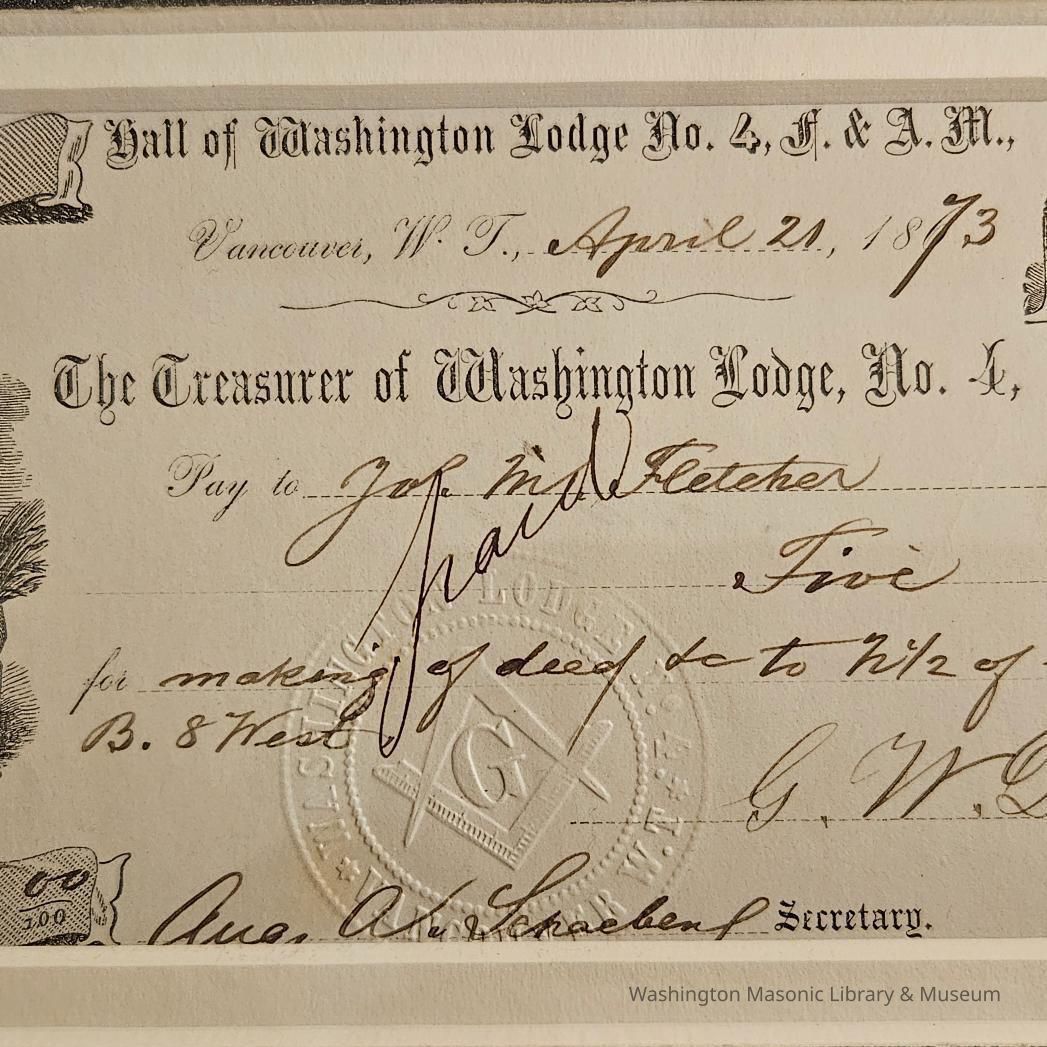 Hall of Washington Lodge No. 4, F. & A. M.,
Vancouver, W. T., April 21, 1873
The Treasurer of Washington Lodge, No. 4,
Pay to Jos. M. Fletcher
paid
Five
for making of deed &c to N 1/2 of
B. 8 West.
G. W.
00
100
Aug. Secretary.
WASHINGTON LODGE No 4
VANCOUVER W.T.
G
Washington Masonic Library & Museum